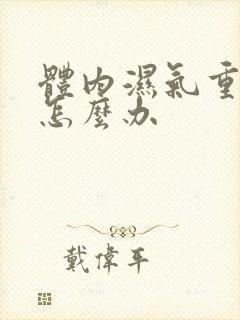 體內濕氣重
怎麼办
戴偉平